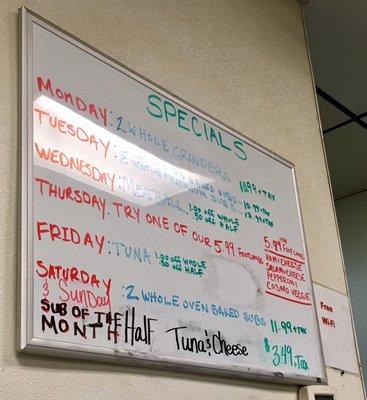 SPECIALS
MONDAY: 2 WHOLE GRINDERS 11.99 + TAX
TUESDAY: 2 WHOLE
10.99 + TAX
12.99 + TAX
WEDNESDAY: MEATBALL 1.00 OFF WHOLE
.50 OFF HALF
THURSDAY: TRY ONE OF OUR 5.99 FOOTLONGS
5.99 FOOTLONGS
HAM & CHEESE
SALAMI & CHEESE
PEPPERONI
COSMO VEGGIE
FRIDAY: TUNA 1.00 OFF WHOLE
.50 OFF HALF
SATURDAY
& SUNDAY: 2 WHOLE OVEN BAKED SUBS 11.99 + TAX
SUB OF THE
MONTH Half Tuna & Cheese $3.49 + TAX
Free
Wi-Fi